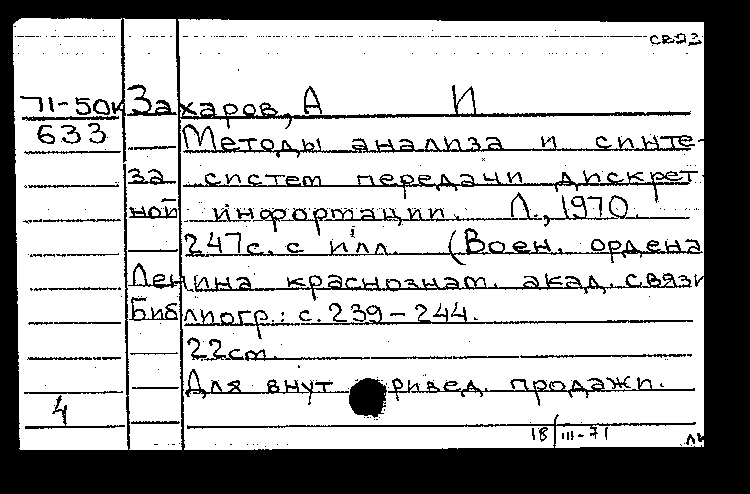 связ
71-50к Захаров, А И
633 Методы анализа и синте-
за систем передачи дискрет-
ной информации. Л., 1970.
247с. с илл. (Воен. ордена
Ленина краснознам. акад. связи
Библиогр.: с. 239-244.
22cm.
Для внут ривед. продажи.
4
18/III-71